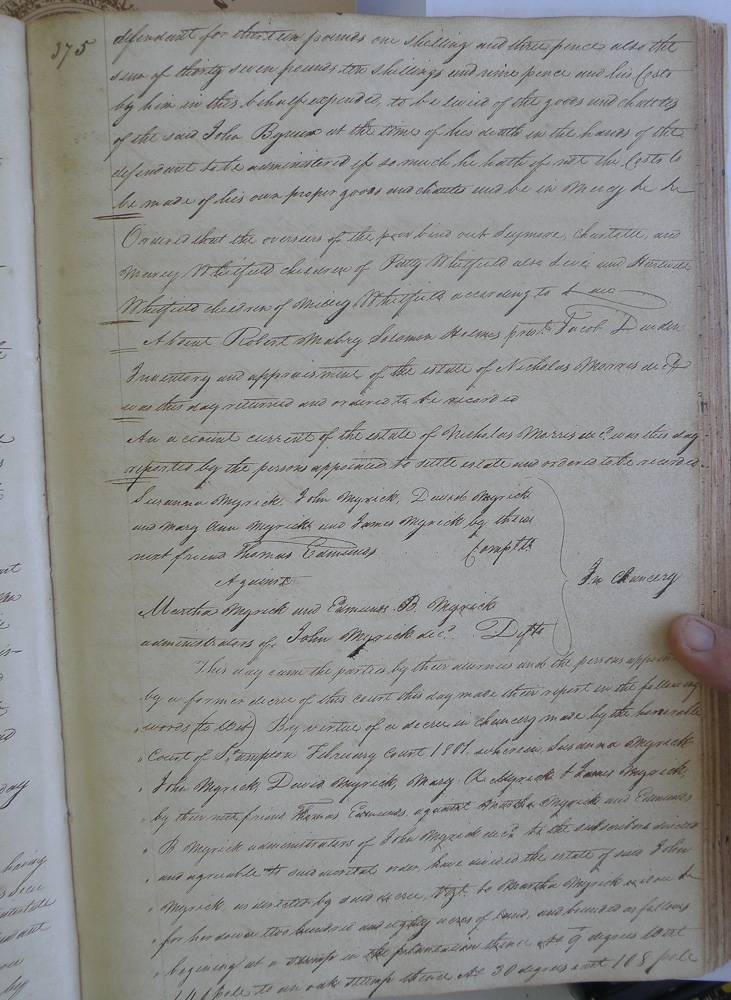 375
defendant for thirteen pounds one shilling and three pence also the
sum of thirty seven pounds ten shillings and nine pence and his Costs
by him in this behalf expended, to be levied of the goods and chattels
of the said John at the time of his death in the hands of the
defendant to be administered if so much he hath if not the Costs to
be made of his own proper goods and chattles and be in Mercy &c &c
Ordered that the overseers of the poor bind out and
Whitfield children of Patty Whitfield also and
Whitfield children of Milley Whitfield according to Law
Absent Robert Mabry Solomon Holmes prest. Jacob Darden
Inventory and appraisment of the estate of Nicholas Morris decd
was this day returned and ordered to be recorded
An account current of the estate of Nicholas Morris decd. was this day
reported by the persons appointed to settle estate and ordered to be recorded
Susanna Myrick John Myrick, David Myrick
and Mary Ann Myrick and James Myrick by their
next friend Thomas Edmunds Complts
Against
In Chancery
Martha Myrick and Edmunds B. Myrick
administrators of John Myrick decd. Defts
This day came the parties by their attornies and the persons
by a former decree of this court this day made their report in the following
words (to wit) By virtue of a decree in chancery made by the honorable
Court of S,,ampton February Court 1807. wherein Susanna Myrick
John Myrick, David Myrick, Mary A Myrick & James Myrick,
by their next friend Thomas Edmunds against Martha Myrick and Edmunds
B Myrick administrators of John Myrick decd. to the subscribers directed
and agreable to said order, have divided the estate of said John
Myrick as directed by said decree, to Martha Myrick
for her dower two hundred and eighty acres of Land, and bounded as follows
begining at a stump in the plantation thence 9 degrees West
pole to an oak stump thence 30 degrees east 108 pole